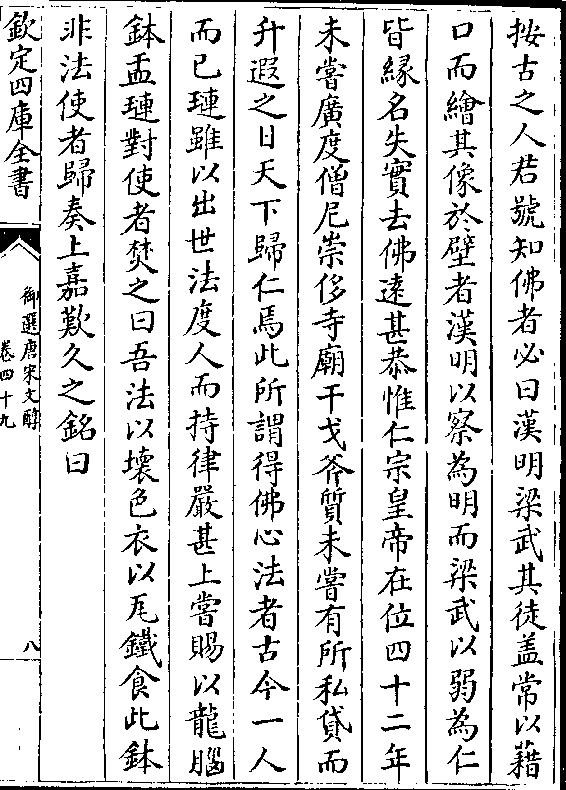 按古之人君號知佛者必曰漢明梁武其徒盖常以藉
口而繪其像於壁者漢明以察為明而梁武以弱為仁
皆縁名失實去佛逺甚恭惟仁宗皇帝在位四十二年
未嘗廣度僧尼崇侈寺廟干戈斧質未嘗有所私貸而
升遐之日天下歸仁焉此所謂得佛心法者古今一人
而已璉雖以出世法度人而持律嚴甚上嘗賜以龍腦
鉢盂璉對使者焚之曰吾法以壊色衣以瓦鐵食此鉢
非法使者歸奏上嘉歎久之銘曰
欽定四庫全書
御選唐宋文醇
卷四十九
八